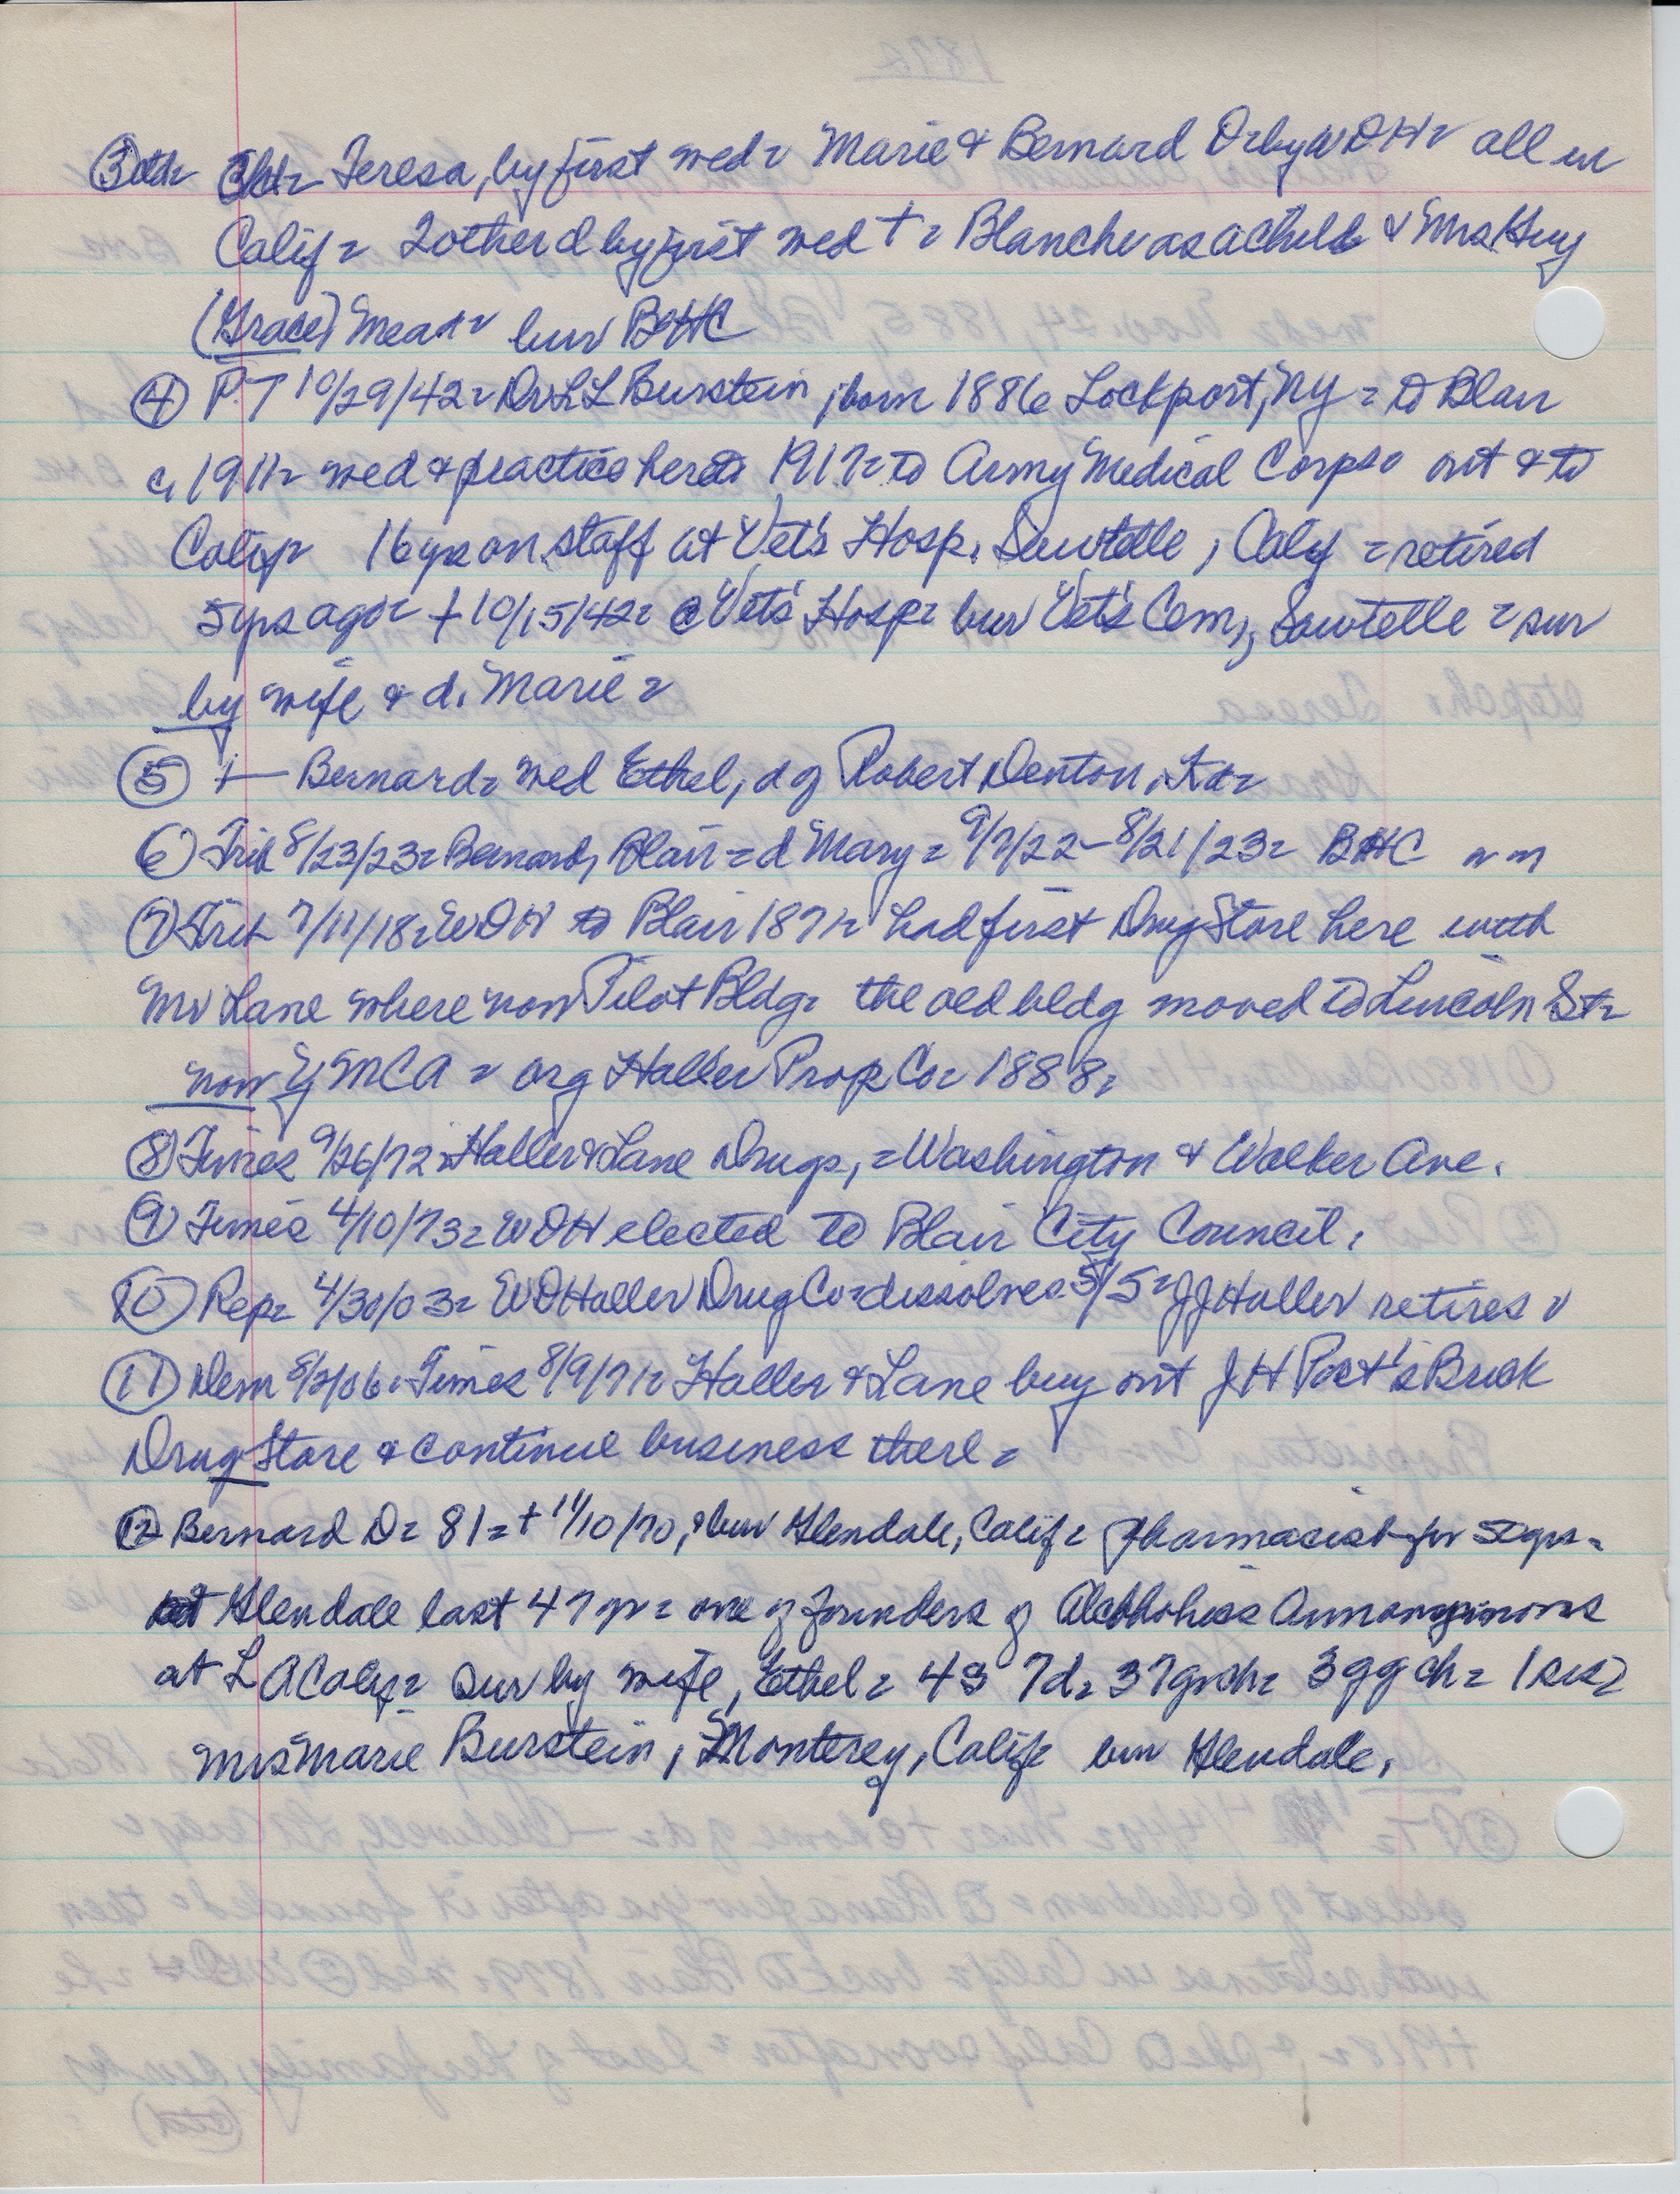 ③ctd= Ch= Teresa, by first wed= Marie & Bernard D= by WDH= all in
Calif= 2 other d by first wed †= Blanche as a child & Mrs Huy
(Grace) Mead= bur BHC
④ P.T 10/29/42= Dr L L Burstein, born 1886 Lockport, NY= to Blair
c, 1911= wed & practice here= 1917= to Army Medical Corps= out & to
Calif= 16 yrs on staff at Vet's Hosp, Sawtelle, Calif= retired
5 yrs ago= † 10/15/42= @ Vets' Hosp= bur Vet's Cem, Sawtelle= sur
by wife & d. Marie=
⑤ †— Bernard= wed Ethel, d of Robert Denton,
⑥ Trib 8/23/23= Bernard, Blair= d Mary= 9/7/22–8/21/23= BHC
⑦ Trib 7/11/18= WDH to Blair 1871= had first Drug Store here with
Mr Lane where now Pilot Bldg= the old bldg moved to Lincoln St=
now YMCA= org Haller Prop Co= 1888=
⑧ Times 9/26/72= Haller & Lane Drugs,= Washington & Walker Ave.
⑨ Times 4/10/73= WDH elected to Blair City Council.
⑩ Rep= 4/30/03= WDHaller Drug Co= dissolves 5/5= JJHaller retires=
⑪ Dem 8/2/06. Times 8/9/71= Haller & Lane buy out J H Post's Brick
Drug Store & continue business there=
⑫ Bernard D= 81= † 11/10/70, & bur Glendale, Calif= Pharmacist for yrs=
at Glendale last 47 yr= one of founders of Alcohohics Annonymous
at L A Calif= sur by wife, Ethel= 4S 7d= 37 grch= 3 ggch= 1 sis=
Mrs Marie Burstein, Monterey, Calif= bur Glendale.